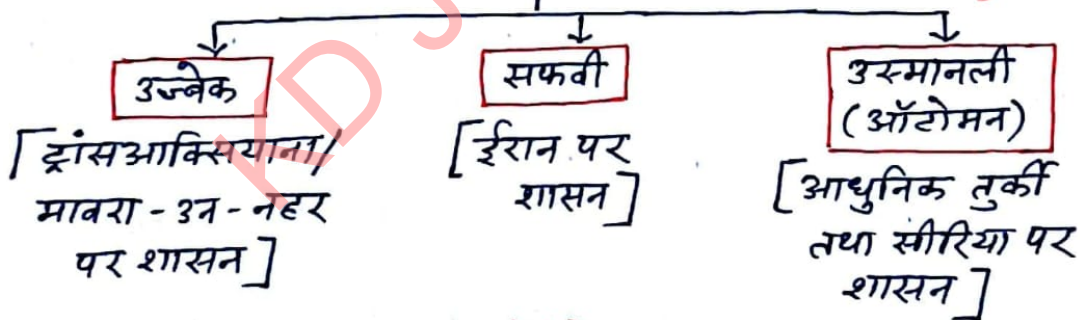 उज्बेक
[ट्रांसआक्सियाना/
मावरा-उन-नहर
पर शासन]
सफवी
[ईरान पर
शासन]
उस्मानली
(ऑटोमन)
[आधुनिक तुर्की
तथा सीरिया पर
शासन]
KD J